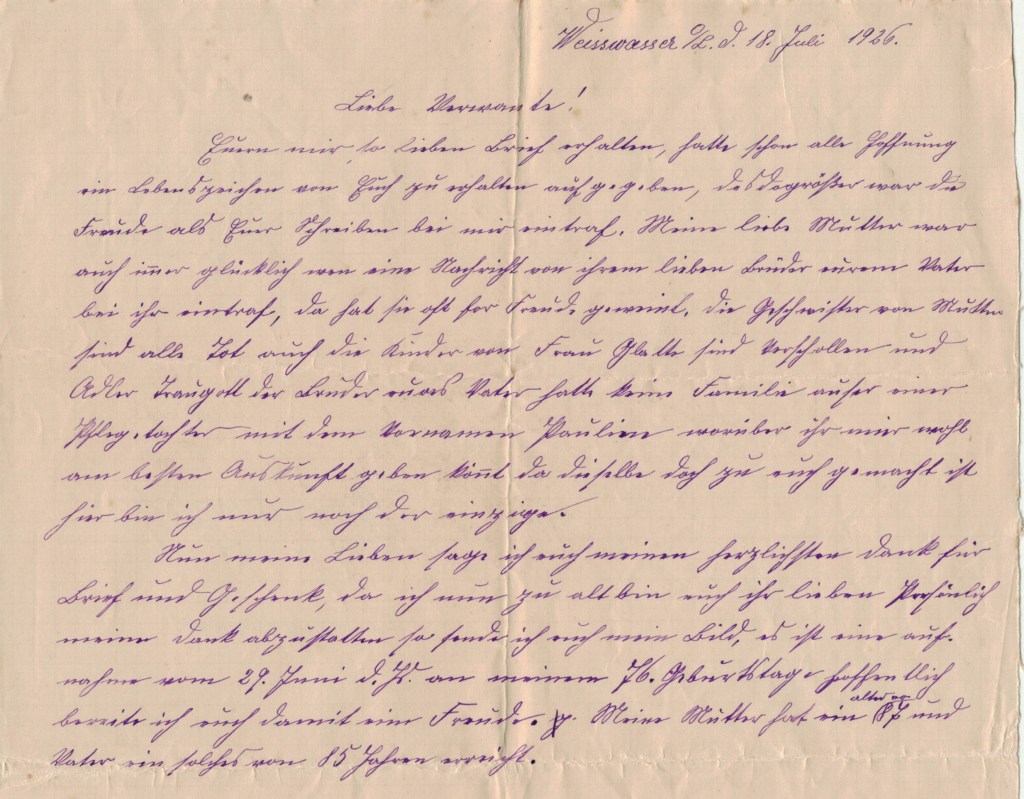 Weisswasser O/L. d. 18. Juli 1926.
Liebe Verwante!
Euern mir so lieben Brief erhalten, hatte schon alle Hoffnung
ein Lebenszeichen von Euch zu erhalten aufgegeben, desdogrößer war die
Freude als Euer Schreiben bei mir eintraf. Meine liebe Mutter war
auch immer glücklich wen eine Nachricht von ihrem lieben Brüder eurem Vater
bei ihr eintraf, da hat sie oft for Freude geweint, die Geschwister von Mutter
sind alle Tot auch die Kinder von Frau Glatte sind Verschollen und
Adler Traugott der Bruder eures Vater hatte keine Familie auser einer
Pflegetochter mit dem Vornamen Paulien worüber ihr mir wohl
am besten Auskunft geben könt da dieselbe doch zu euch gemacht ist
hier bin ich nur noch der einzige.
Nun meine Lieben sage ich euch meinen herzlichsten Dank für
Brief und Geschenk, da ich nun zu alt bin euch ihr lieben Persönlich
meinen Dank abzustatten so sende ich euch mein Bild, es ist eine auf-
nahme vom 29. Juni d. Js. an meinem 76. Geburtstage hoffentlich
bereite ich euch damit eine Freude. Meine Mutter hat ein alter von 87 und
Vater ein solches von 85 Jahren erreicht.